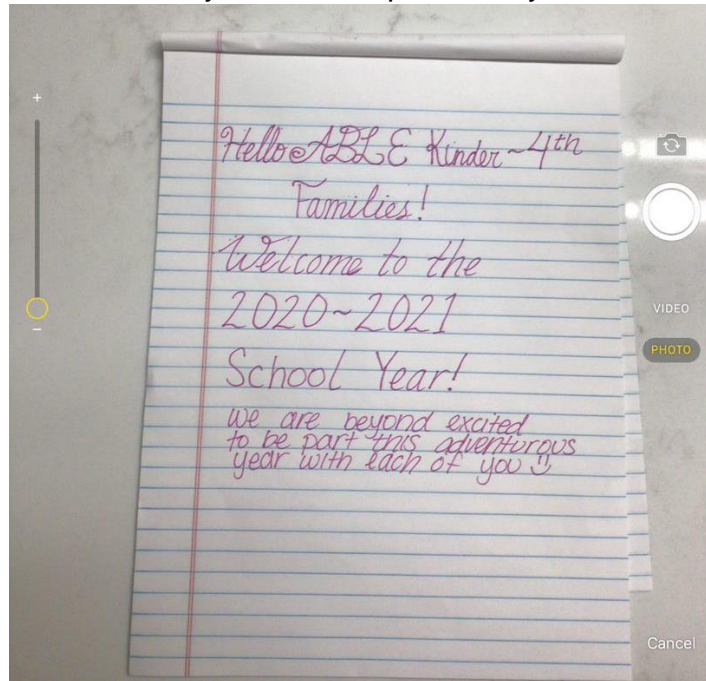 Hello ABLE Kinder~4th
Families!
Welcome to the
2020~2021
School Year!
we are beyond excited
to be part this adventurous
year with each of you
VIDEO
PHOTO
Cancel